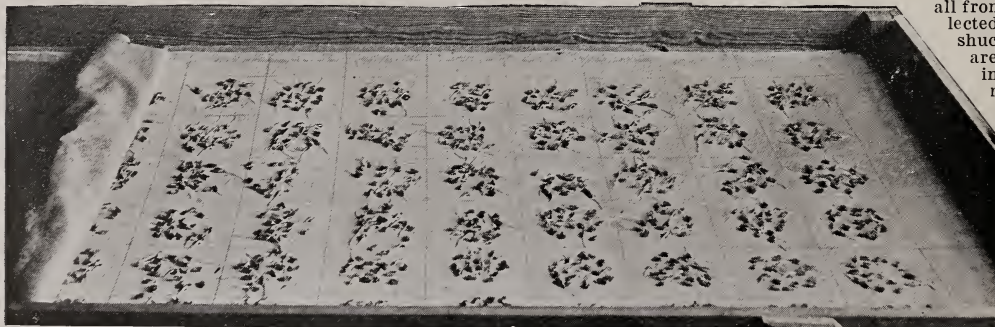 all from
lected
shuc
are
in